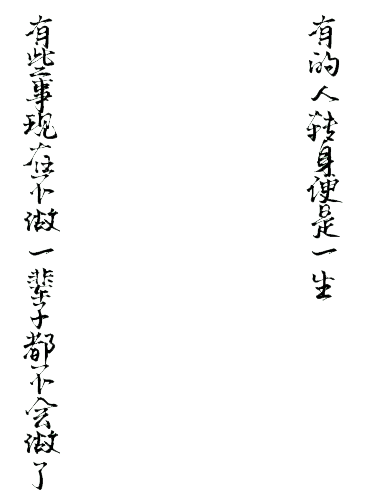 有的人转身便是一生
有些事现在不做一辈子都不会做了